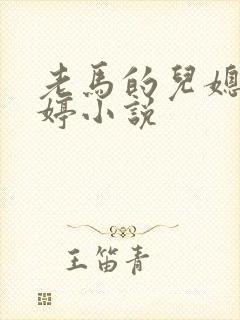 老馬的兒媳
婷小説
王笛青